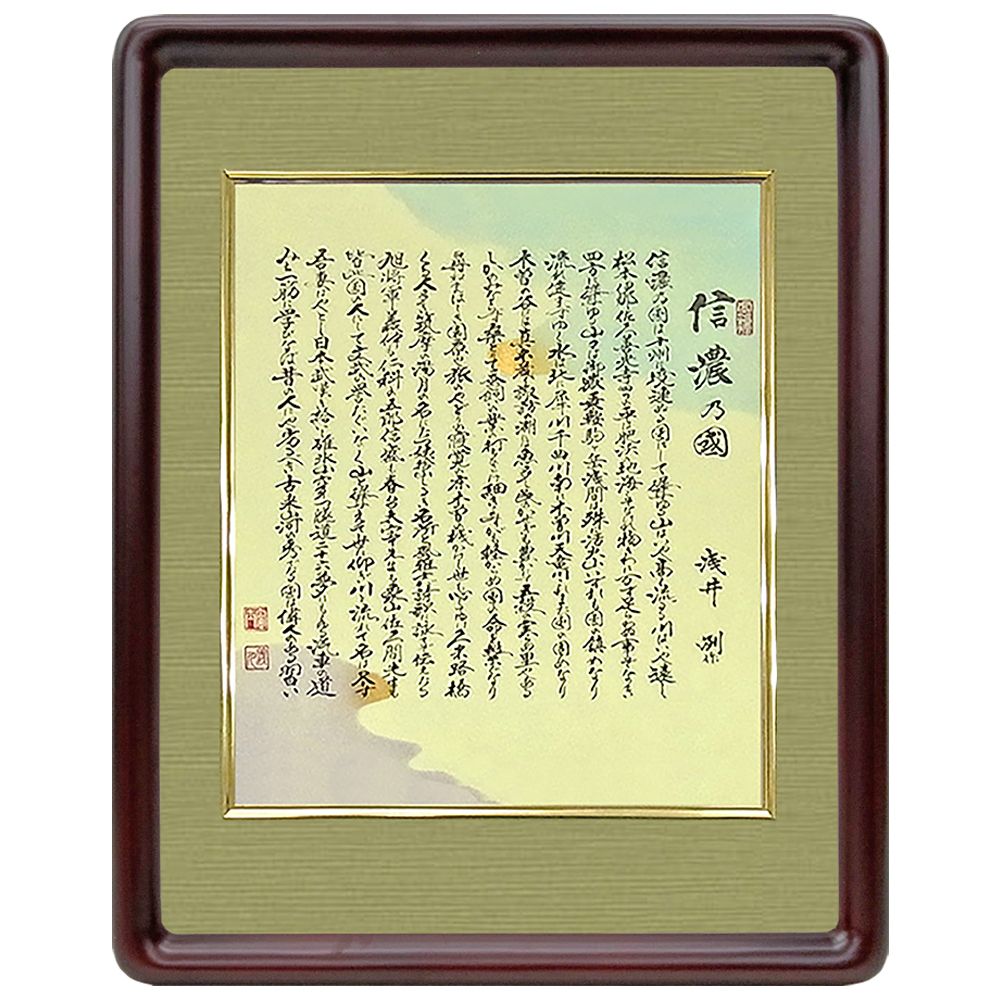 信濃乃國
浅井 洌作
信濃の国は十州に境連ぬる国にして聳ゆる山はいや高く流るる川はいや遠し
松本伊那佐久善光寺四つの平は肥沃の地海こそなけれ物さわに万ず足らわぬ事ぞなき
四方に聳ゆる山々は御嶽乗鞍駒ヶ岳浅間は殊に活火山いずれも国の鎮めなり
流れ淀まずゆく水は北に犀川千曲川南に木曽川天竜川これまた国の固めなり
木曽の谷には真木茂り諏訪の湖には魚多し民のかせぎも豊かにて五穀の実らぬ里やある
しかのみならず桑とりて蚕飼いの業の打ちひらけ細きよすがも軽からぬ国の命を繋ぐなり
尋ねまほしき園原や旅のやどりの寝覚の床木曽の棧かけし世も心してゆけ久米路橋
くる人多き筑摩の湯月の名にたつ姨捨山しるき名所と風雅士が詩歌に詠てぞ伝えたる
旭将軍義仲も仁科の五郎信盛も春台太宰先生も象山佐久間先生も
皆此国の人にして文武の誉たぐいなく山と聳えて世に仰ぎ川と流れて名は尽ず
吾妻はやとし日本武嘆き給いし碓氷山穿つ隧道二十六夢にもこゆる汽車の道
みち一筋に学びなば昔の人にや劣るべき古来山河の秀でたる国は偉人のある習い